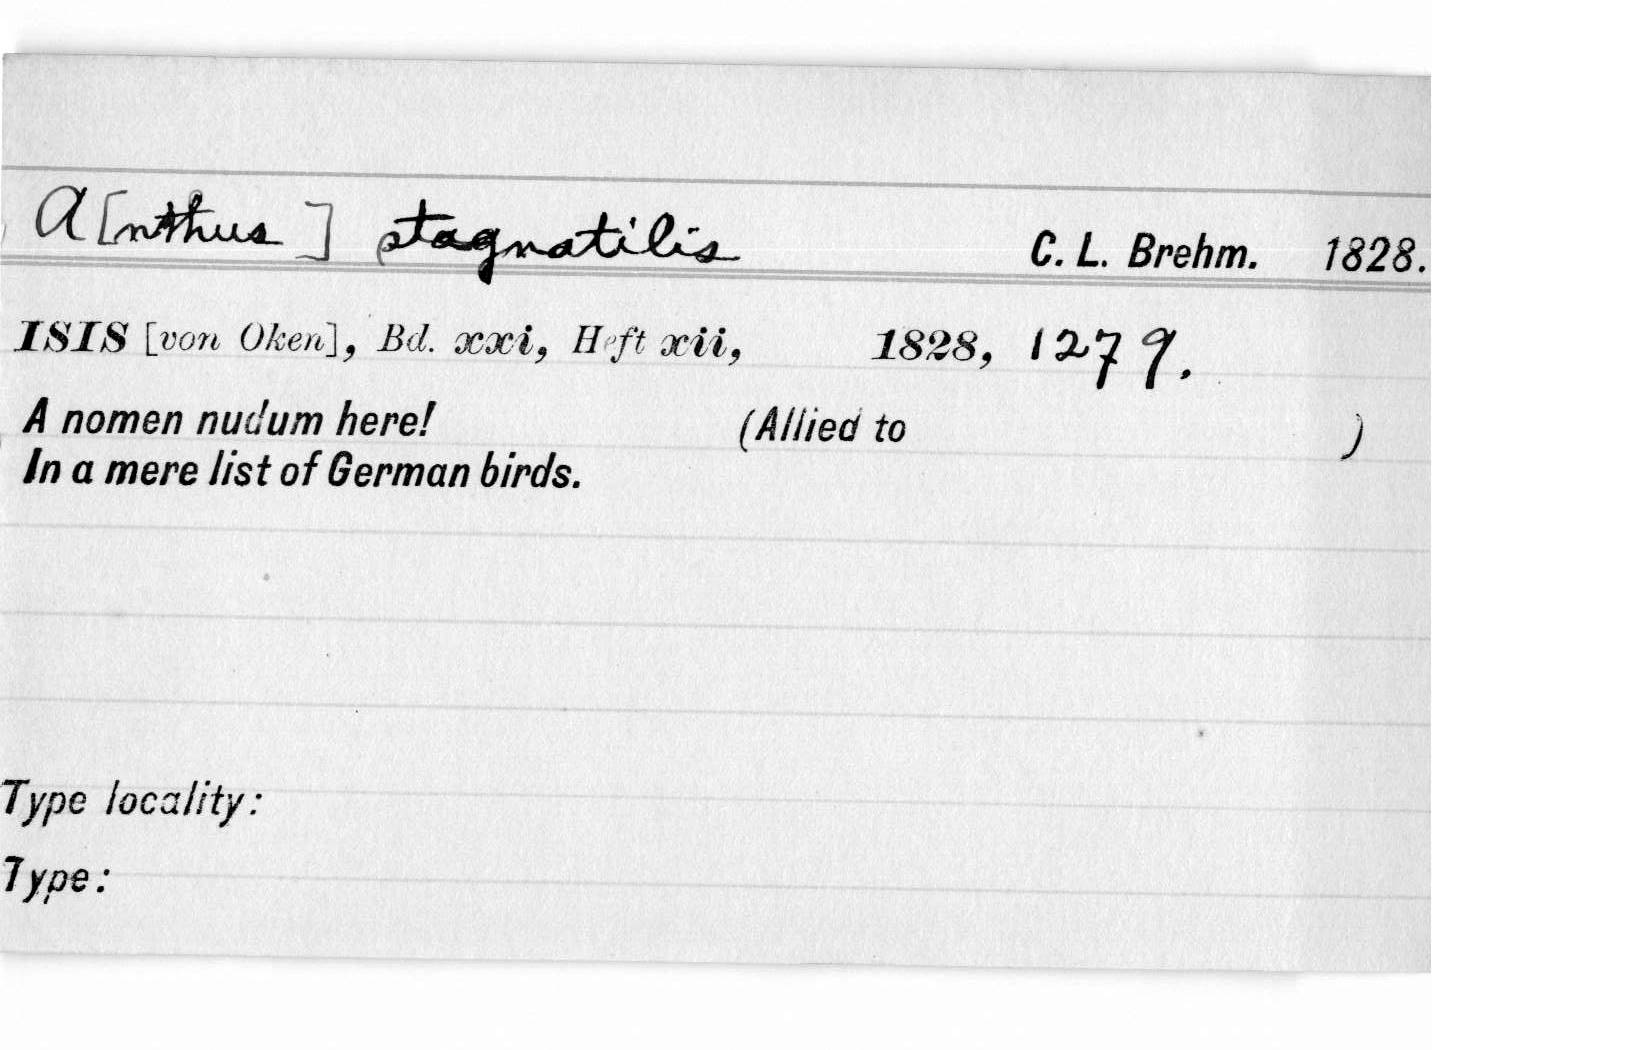 A[nthus] stagnatilis C. L. Brehm. 1828.
ISIS [von Oken], Bd. xxi, Heft xii, 1828, 1279.
A nomen nudum here! (Allied to )
In a mere list of German birds.
Type locality:
Type: